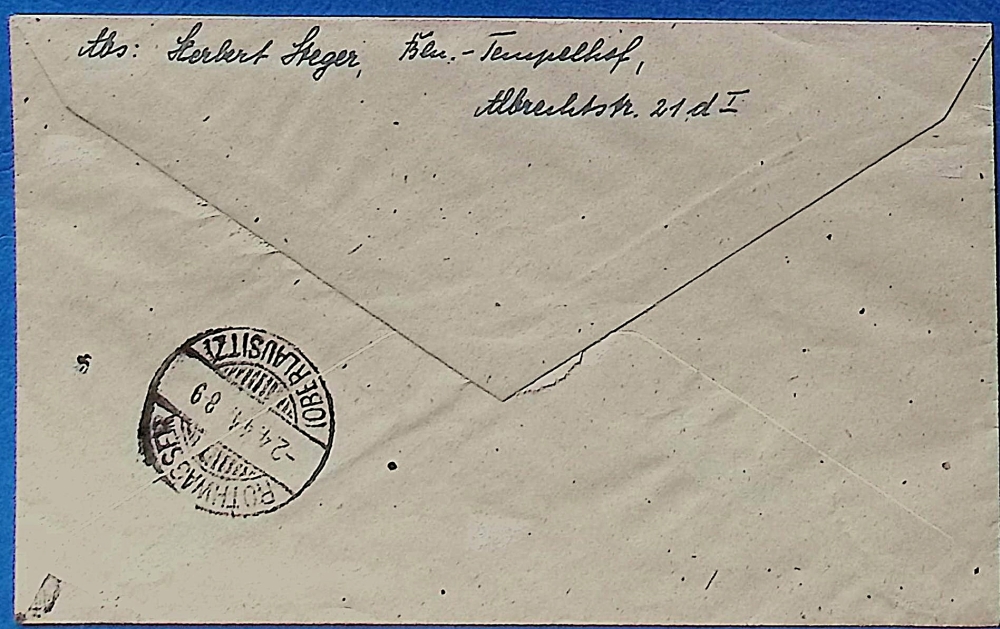 Abs: Herbert Steger, Bln.-Tempelhof,
Albrechtstr. 21 d I
ROTHWASSER
-2.4.44. 8-9
(OBERLAUSITZ)